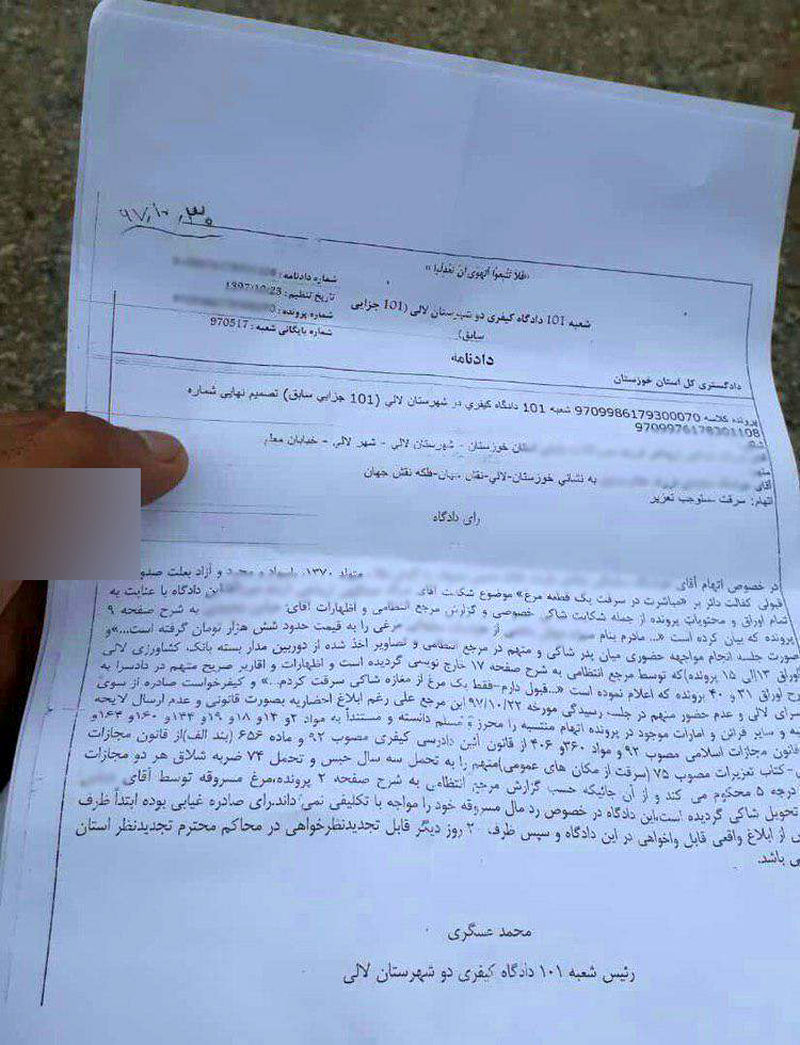 ۹۷،۱۰،۳۰
«فلا تتبعوا الهوی ان تعدلوا»
شماره دادنامه:
تاریخ تنظیم: 1397/10/23
شماره پرونده:
شماره بایگانی شعبه: 970517
شعبه 101 دادگاه کیفری دو شهرستان لالی (101 جزایی
سابق)
دادنامه
دادگستری کل استان خوزستان
پرونده کلاسه 9709986179300070 شعبه 101 دادگاه کیفری در شهرستان لالی (101 جزایی سابق) تصمیم نهایی شماره
9709976178301108
خوزستان - شهرستان لالی - شهر لالی - خیابان معلم
آقای به نشانی خوزستان-لالی-نقش جهان-فلکه نقش جهان
اتهام: سرقت مستوجب تعزیر
رای دادگاه
در خصوص اتهام آقای متولد ۱۳۷۰، باسواد و مجرد و آزاد بعلت صدور
قبولی کفالت دائر بر «مباشرت در سرقت یک قطعه مرغ» موضوع شکایت آقای این دادگاه با عنایت به
تمام اوراق و محتویات پرونده از جمله شکایت شاکی خصوصی و گزارش مرجع انتظامی و اظهارات آقای: به شرح صفحه ۹
پرونده که بیان کرده است «... مادرم بنام از مرغی را به قیمت حدود شش هزار تومان گرفته است...»و
صورت جلسه انجام مواجهه حضوری میان پدر شاکی و متهم در مرجع انتظامی و تصاویر اخذ شده از دوربین مدار بسته بانک کشاورزی لالی
اوراق ۱۳الی ۱۵ پرونده)که توسط مرجع انتظامی به شرح صفحه ۱۷ خارج نویسی گردیده است و اظهارات و اقاریر صریح متهم در دادسرا به
رح اوراق ۳۱ و ۴۰ پرونده که اعلام نموده است «..قبول دارم-فقط یک مرغ از مغازه شاکی سرقت کردم...» و کیفرخواست صادره از سوی
سرای لالی و عدم حضور متهم در جلسه رسیدگی مورخه ۹۷/۱۰/۲۲ این مرجع علی رغم ابلاغ احضاریه بصورت قانونی و عدم ارسال لایحه
یه و سایر قرائن و امارات موجود در پرونده اتهام منتسبه را محرز و مسلم دانسته و مستنداً به مواد ۲و ۱۴ و ۱۸ و ۱۹و ۱۳۴ و ۱۶۰و ۱۶۴و
قانون مجازات اسلامی مصوب ۹۲ و مواد ۳۶۰و ۴۰۶ از قانون آئین دادرسی کیفری مصوب ۹۲ و ماده ۶۵۶ (بند الف)از قانون مجازات
- کتاب تعزیرات مصوب ۷۵ (سرقت از مکان های عمومی)متهم را به تحمل سه سال حبس و تحمل ۷۴ ضربه شلاق هر دو مجازات
درجه ۵ محکوم می کند و از آن جائیکه حسب گزارش مرجع انتظامی به شرح صفحه ۲ پرونده،مرغ مسروقه توسط آقای
تحویل شاکی گردیده است،این دادگاه در خصوص رد مال مسروقه خود را مواجه با تکلیفی نمی داند.رای صادره غیابی بوده ابتدأ ظرف
از ابلاغ واقعی قابل واخواهی در این دادگاه و سپس ظرف ۲۰ روز دیگر قابل تجدیدنظرخواهی در محاکم محترم تجدیدنظر استان
ی باشد.
محمد عسگری
رئیس شعبه ۱۰۱ دادگاه کیفری دو شهرستان لالی